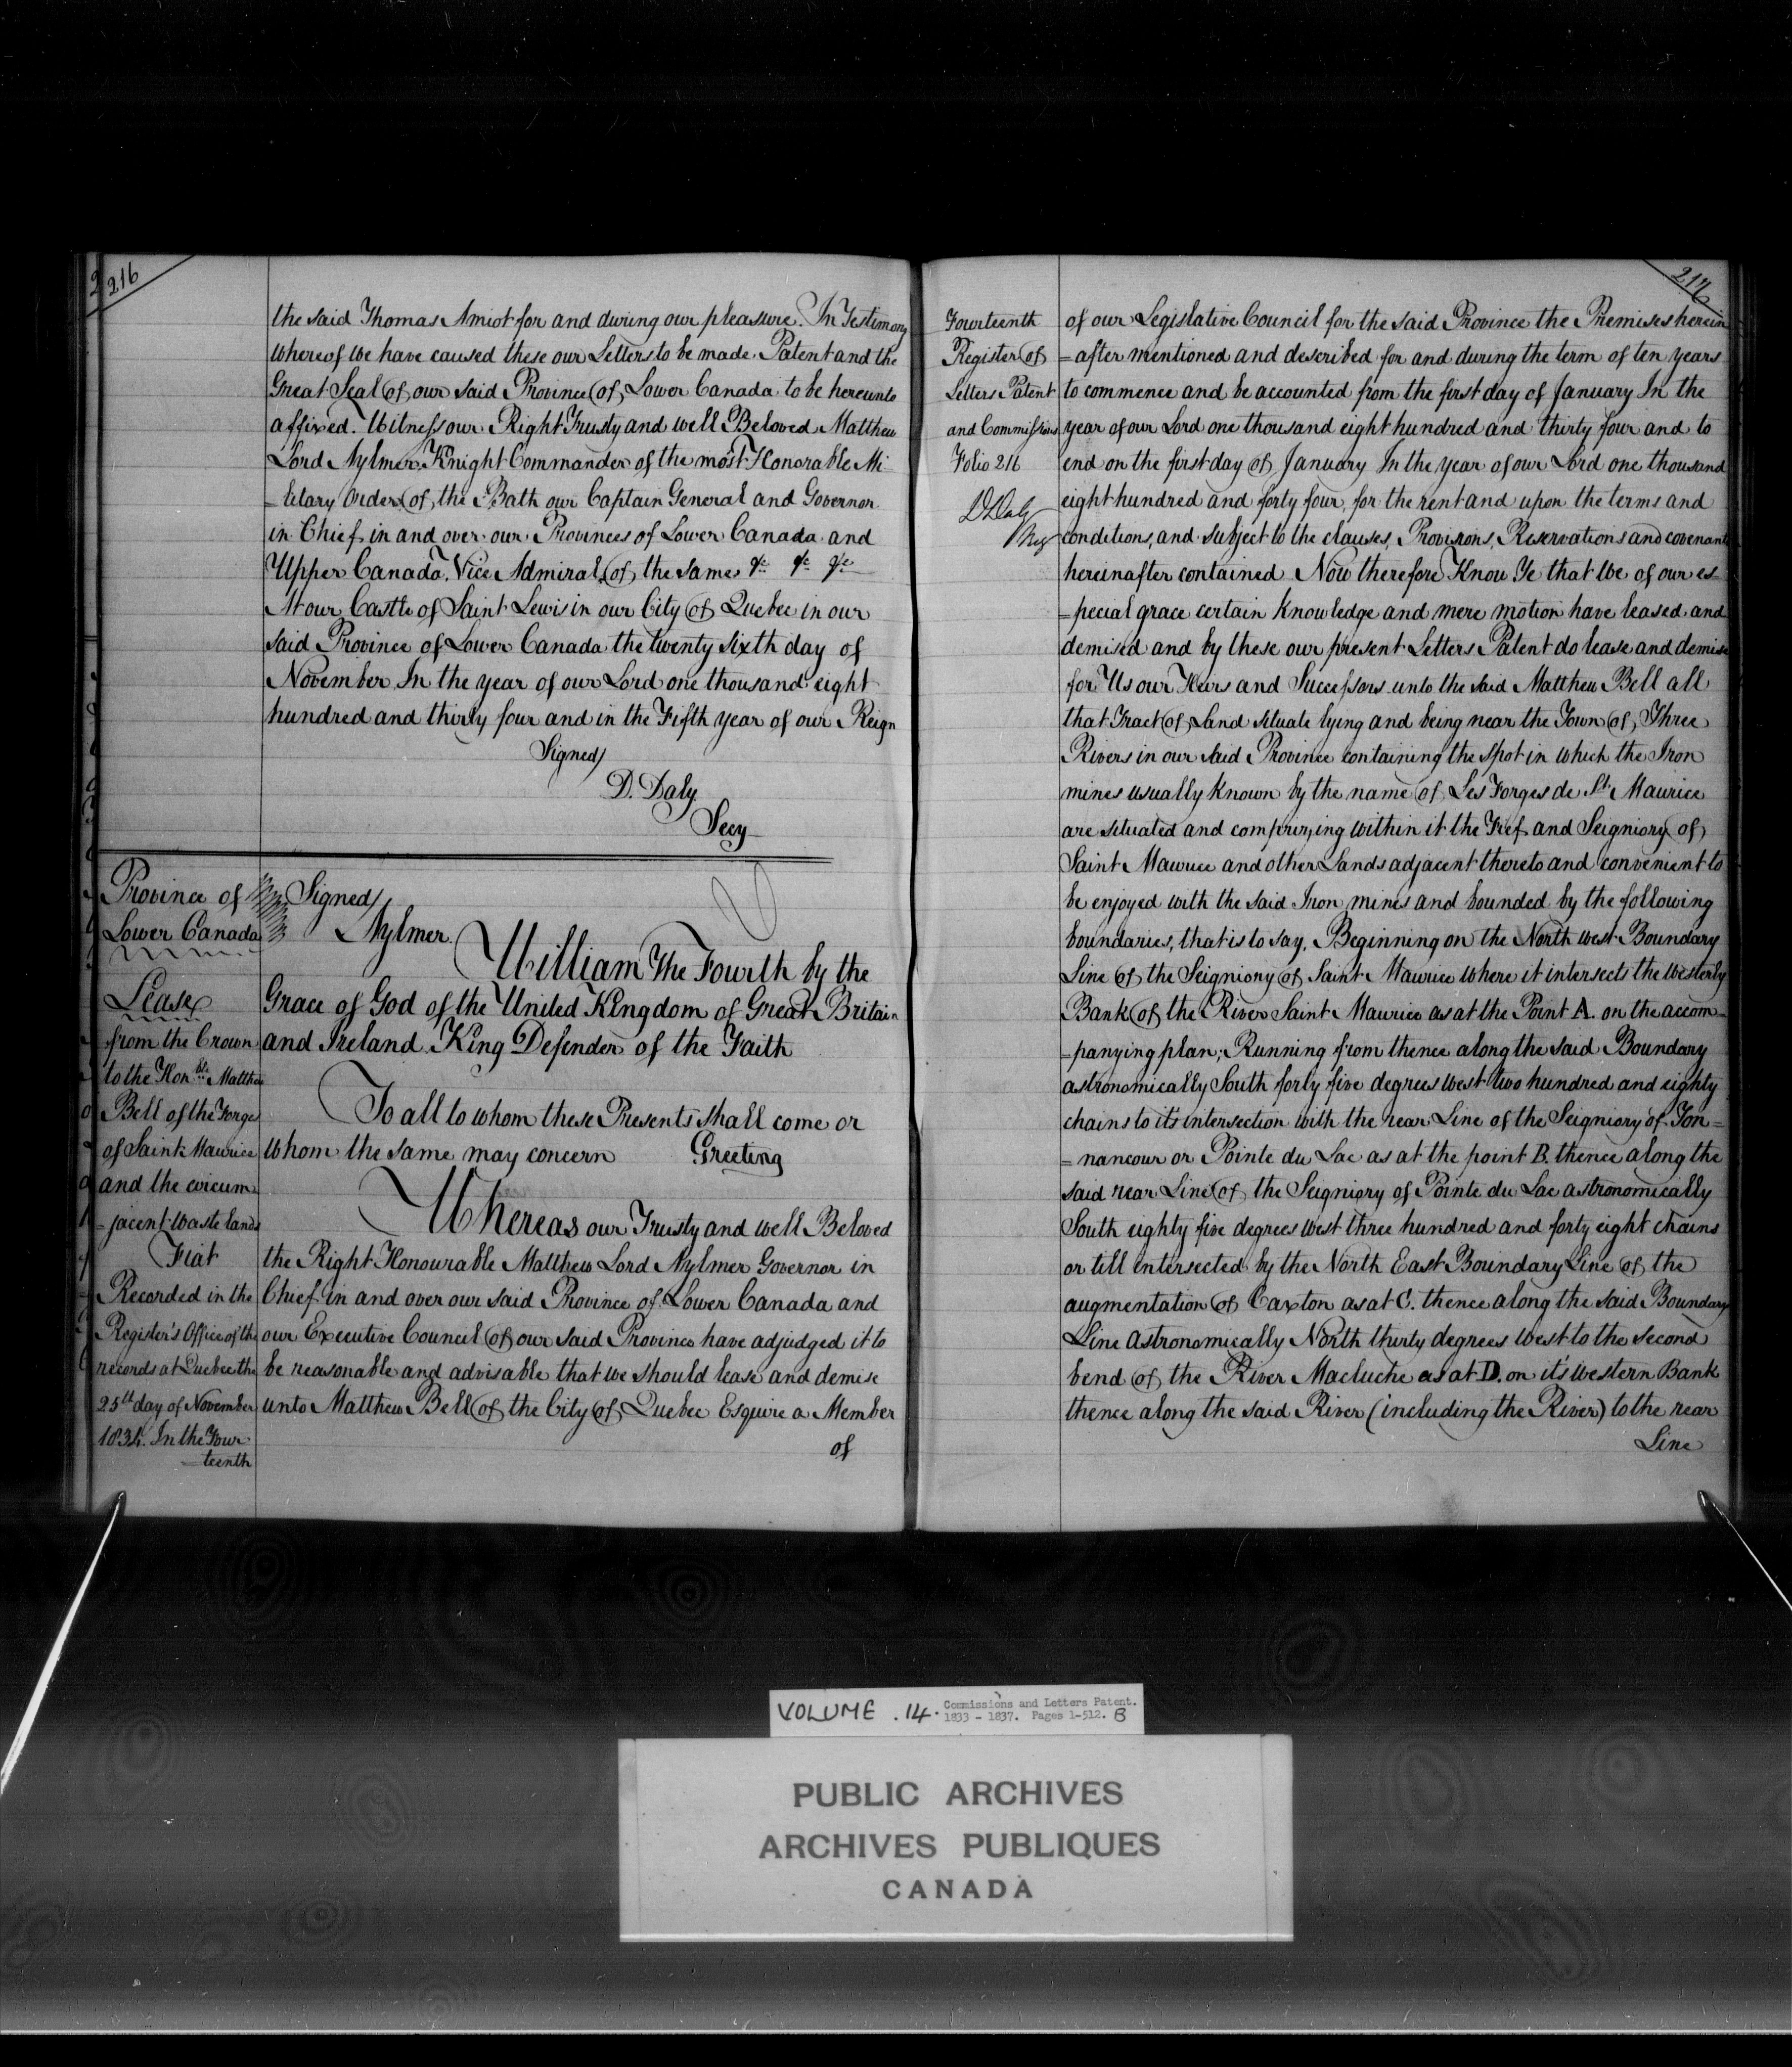 216
the said Thomas Amiot for and during our pleasure. In Testimony
whereof we have caused these our Letters to be made Patent and the
Great Seal of our said Province of Lower Canada to be hereunto
affixed. Witness our Right Trusty and well Beloved Matthew
Lord Aylmer Knight Commander of the most Honorable Mi
=litary Order of the Bath our Captain General and Governor
in Chief in and over our Provinces of Lower Canada and
Upper Canada, Vice Admiral of the same &c &c &c
At our Castle of Saint Lewis in our City of Quebec in our
said Province of Lower Canada the twenty sixth day of
November In the year of our Lord one thousand eight
hundred and thirty four and in the Fifth year of our Reign
Signed/
D. Daly
Secy
Province of
Lower Canada
Lease
from the Crown
to the Honble Matthew
Bell of the Forges
of Saint Maurice
and the circum=
=jacent waste lands
Fiat
Recorded in the
Register's Office of the
records at Quebec the
25th day of November
1834. In the Four
=teenth
Signed/
Aylmer.
William The Fourth by the
Grace of God of the United Kingdom of Great Britain
and Ireland King Defender of the Faith
To all to whom these Presents shall come or
whom the same may concern Greeting
Whereas our Trusty and well Beloved
the Right Honourable Matthew Lord Aylmer Governor in
Chief in and over our said Province of Lower Canada and
our Executive Council of our said Province have adjudged it to
be reasonable and advisable that we should lease and demise
unto Matthew Bell of the City of Quebec Esquire a Member
of
217
Fourteenth
Register of
Letters Patent
and Commissions
Folio 216
D Daly
Reg
of our Legislative Council for the said Province the Premises herein
=after mentioned and described for and during the term of ten years
to commence and be accounted from the first day of January In the
year of our Lord one thousand eight hundred and thirty four and to
end on the first day of January In the year of our Lord one thousand
eight hundred and forty four, for the rent and upon the terms and
conditions, and subject to the clauses, Provisions, Reservations and covenants
hereinafter contained Now therefore Know Ye that We of our es=
=pecial grace certain knowledge and mere motion have leased and
demised and by these our present Letters Patent do lease and demise
for Us our Heirs and Successors unto the said Matthew Bell all
that Tract of Land situate lying and being near the Town of Three
Rivers in our said Province containing the spot in which the Iron
mines usually known by the name of Les Forges de St. Maurice
are situated and comprizing within it the Fief and Seigniory of
Saint Maurice and other Lands adjacent thereto and convenient to
be enjoyed with the said Iron mines and bounded by the following
boundaries, that is to say, Beginning on the North west Boundary
Line of the Seigniory of Saint Maurice where it intersects the westerly
Bank of the River Saint Maurice as at the Point A. on the accom=
=panying plan; Running from thence along the said Boundary
astronomically South forty five degrees west two hundred and eighty
chains to it's intersection with the rear Line of the Seigniory of Ton=
=nancour or Pointe du Lac as at the point B. thence along the
said rear Line of the Seigniory of Pointe du Lac astronomically
South eighty five degrees west three hundred and forty eight chains
or till intersected by the North East Boundary Line of the
augmentation of Caxton as at C. thence along the said Boundary
Line astronomically North thirty degrees West to the second
bend of the River Macluche as at D. on it's western Bank
thence along the said River (including the River) to the rear
Line
VOLUME . 14. Commissions and Letters Patent.
1833 - 1837. Pages 1-512. B
PUBLIC ARCHIVES
ARCHIVES PUBLIQUES
CANADA